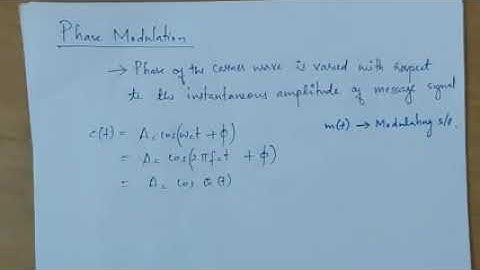 Phase Modulation
→ Phase of the carrier wave is varied with respect
to the instantaneous amplitude of message signal
c(t) = Ac cos(ωct + ϕ)
m(t) → Modulating s/g.
= Ac cos(2πfct + ϕ)
= Ac cos θ(t)